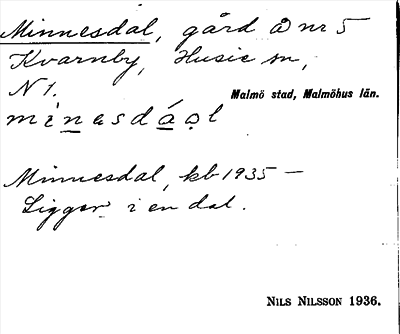 Minnesdal, gård å nr 5
Kvarnby, Husie sn,
N 1.
Malmö stad, Malmöhus län.
minesdáal
Minnesdal, kb 1935 –
Ligger i en dal.
NILS NILSSON 1936.